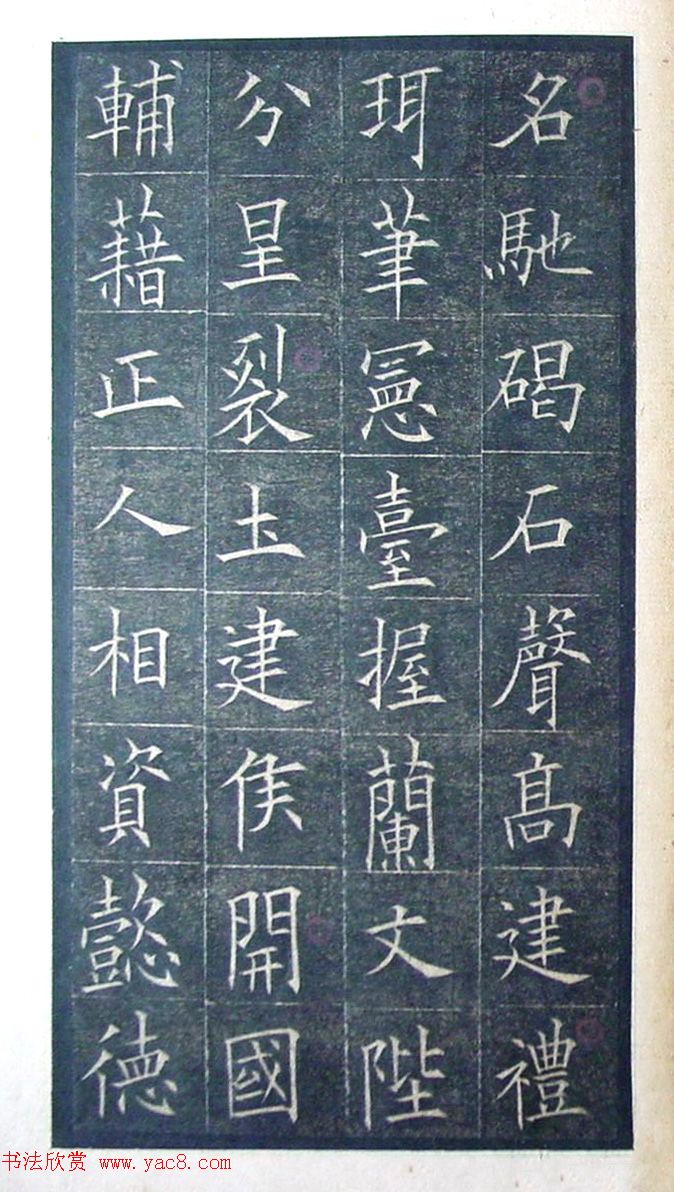 名馳碣石聲髙建禮
珥筆憲臺握蘭文陛
分星裂土建侯開國
輔藉正人相資懿德
书法欣赏 www.yac8.com